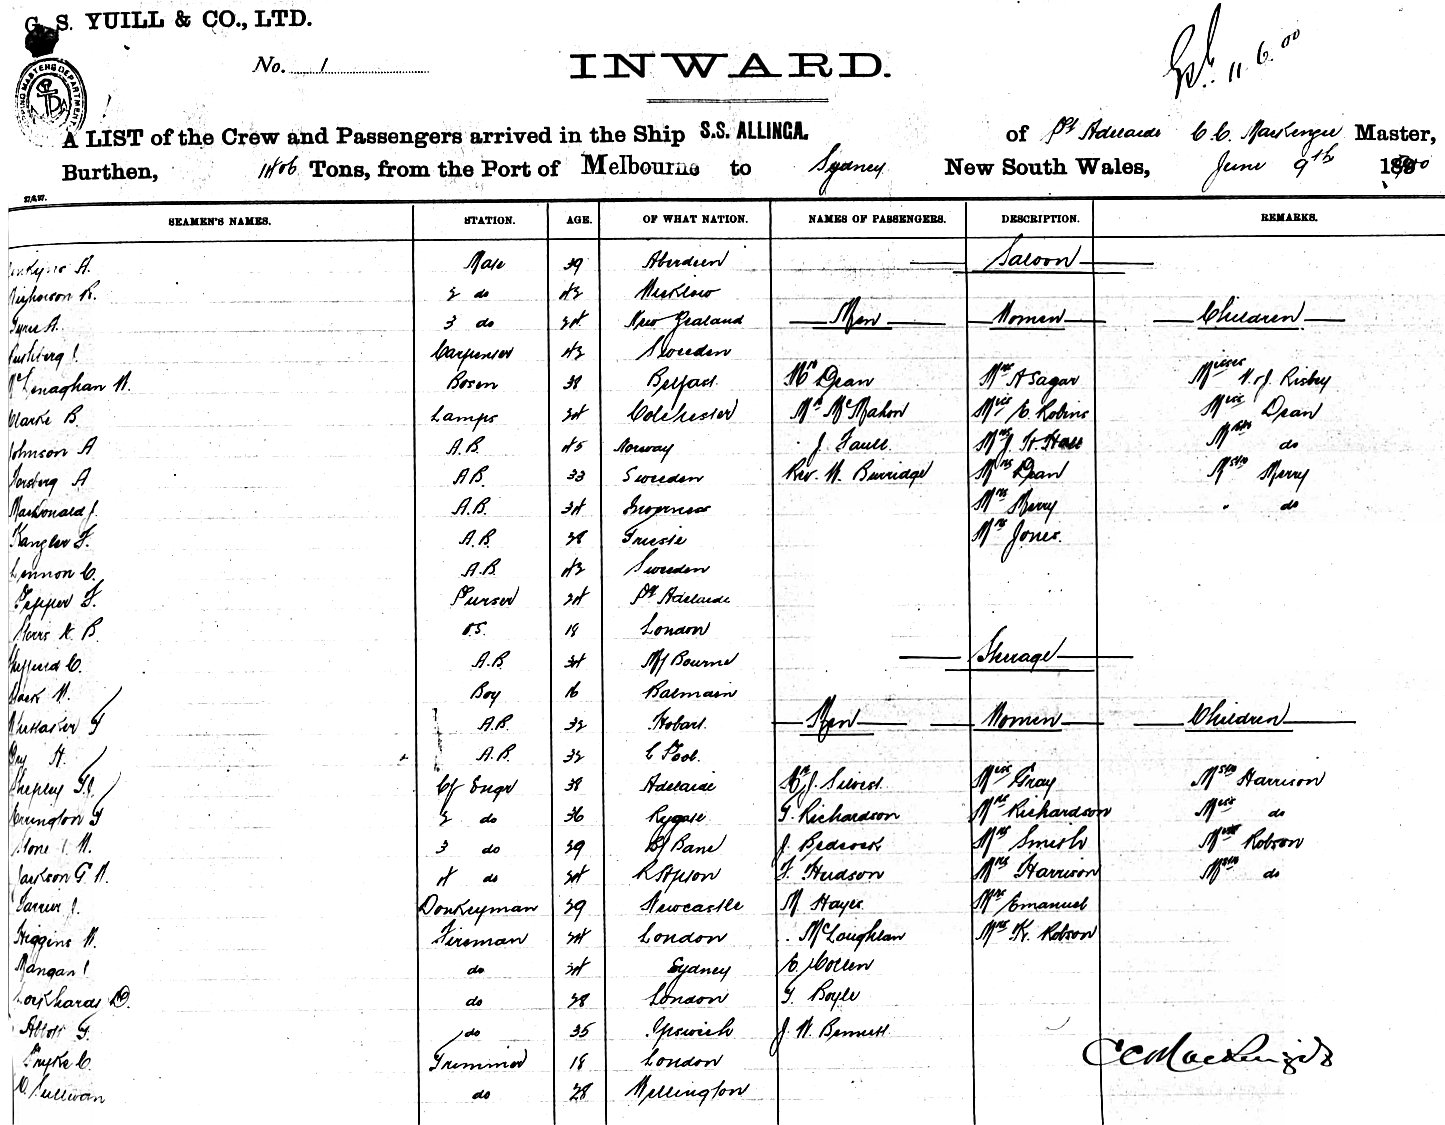 G. S. YUILL & CO., LTD.
No. 1
INWARD.
11.6.00
A LIST of the Crew and Passengers arrived in the Ship S.S. ALLINGA. of Pt Adelaide C C. MacKenzie Master,
Burthen, Tons, from the Port of Melbourne to Sydney New South Wales, June 9th
SEAMEN'S NAMES. STATION. AGE. OF WHAT NATION. NAMES OF PASSENGERS. DESCRIPTION. REMARKS.
A. Mate 39 Aberdeen Saloon
R. 2 do 42 Wicklow
A. 3 do New Zealand Men Women Children
Carpenter 42 Sweden
McLenaghan W. Bosen 38 Belfast Mr Dean Mrs Asagar Misses V. & J. Risby
Clarke B. Lamps Colchester Mr McMahon Miss E. Robins Miss Dean
Johnson A A.B. 45 Norway J. Faull Mrs J. H. Hall do
A A.B. 33 Sweden Rev. W. Burridge Mrs Dean Mstr Merry
MacDonald J. A.B. 34 Inverness Mrs Merry " do
Kangler F. A.B. 28 Trieste Mrs Jones.
Lennon C. A.B. 42 Sweden
Pepper F. Purser Pt Adelaide
B. O.S. 18 London
Sheppard C. A.B. 34 M/Bourne Steerage
W. Boy 16 Balmain
Whittaker G A.B. 32 Hobart Men Women Children
H. A.B. 32 L'Pool.
Shepley Cf Engr 38 Adelaide Mr J. Silvest Miss Gray Mstr Harrison
Errington G 2 do 36 Rygate G. Richardson Mrs Richardson Miss do
Stone W. 3 do 29 B/Bane J. Badcock Mrs Smith Robson
Jackson G. W. 4 do F. Hudson Mrs Harrison do
Carrier J. Donkeyman 29 Newcastle M Hayes Mrs Emanuel
Higgins W. Fireman London McLoughlan Mrs K. Robson
Mangan do Sydney E. Collen
Lockhard D. do 28 London G. Boyle
Abbott G. do 35 Ipswich J. W. Bennett
Pryke C. Trimmer 18 London CCMacKenzie
O'Sullivan do 28 Wellington